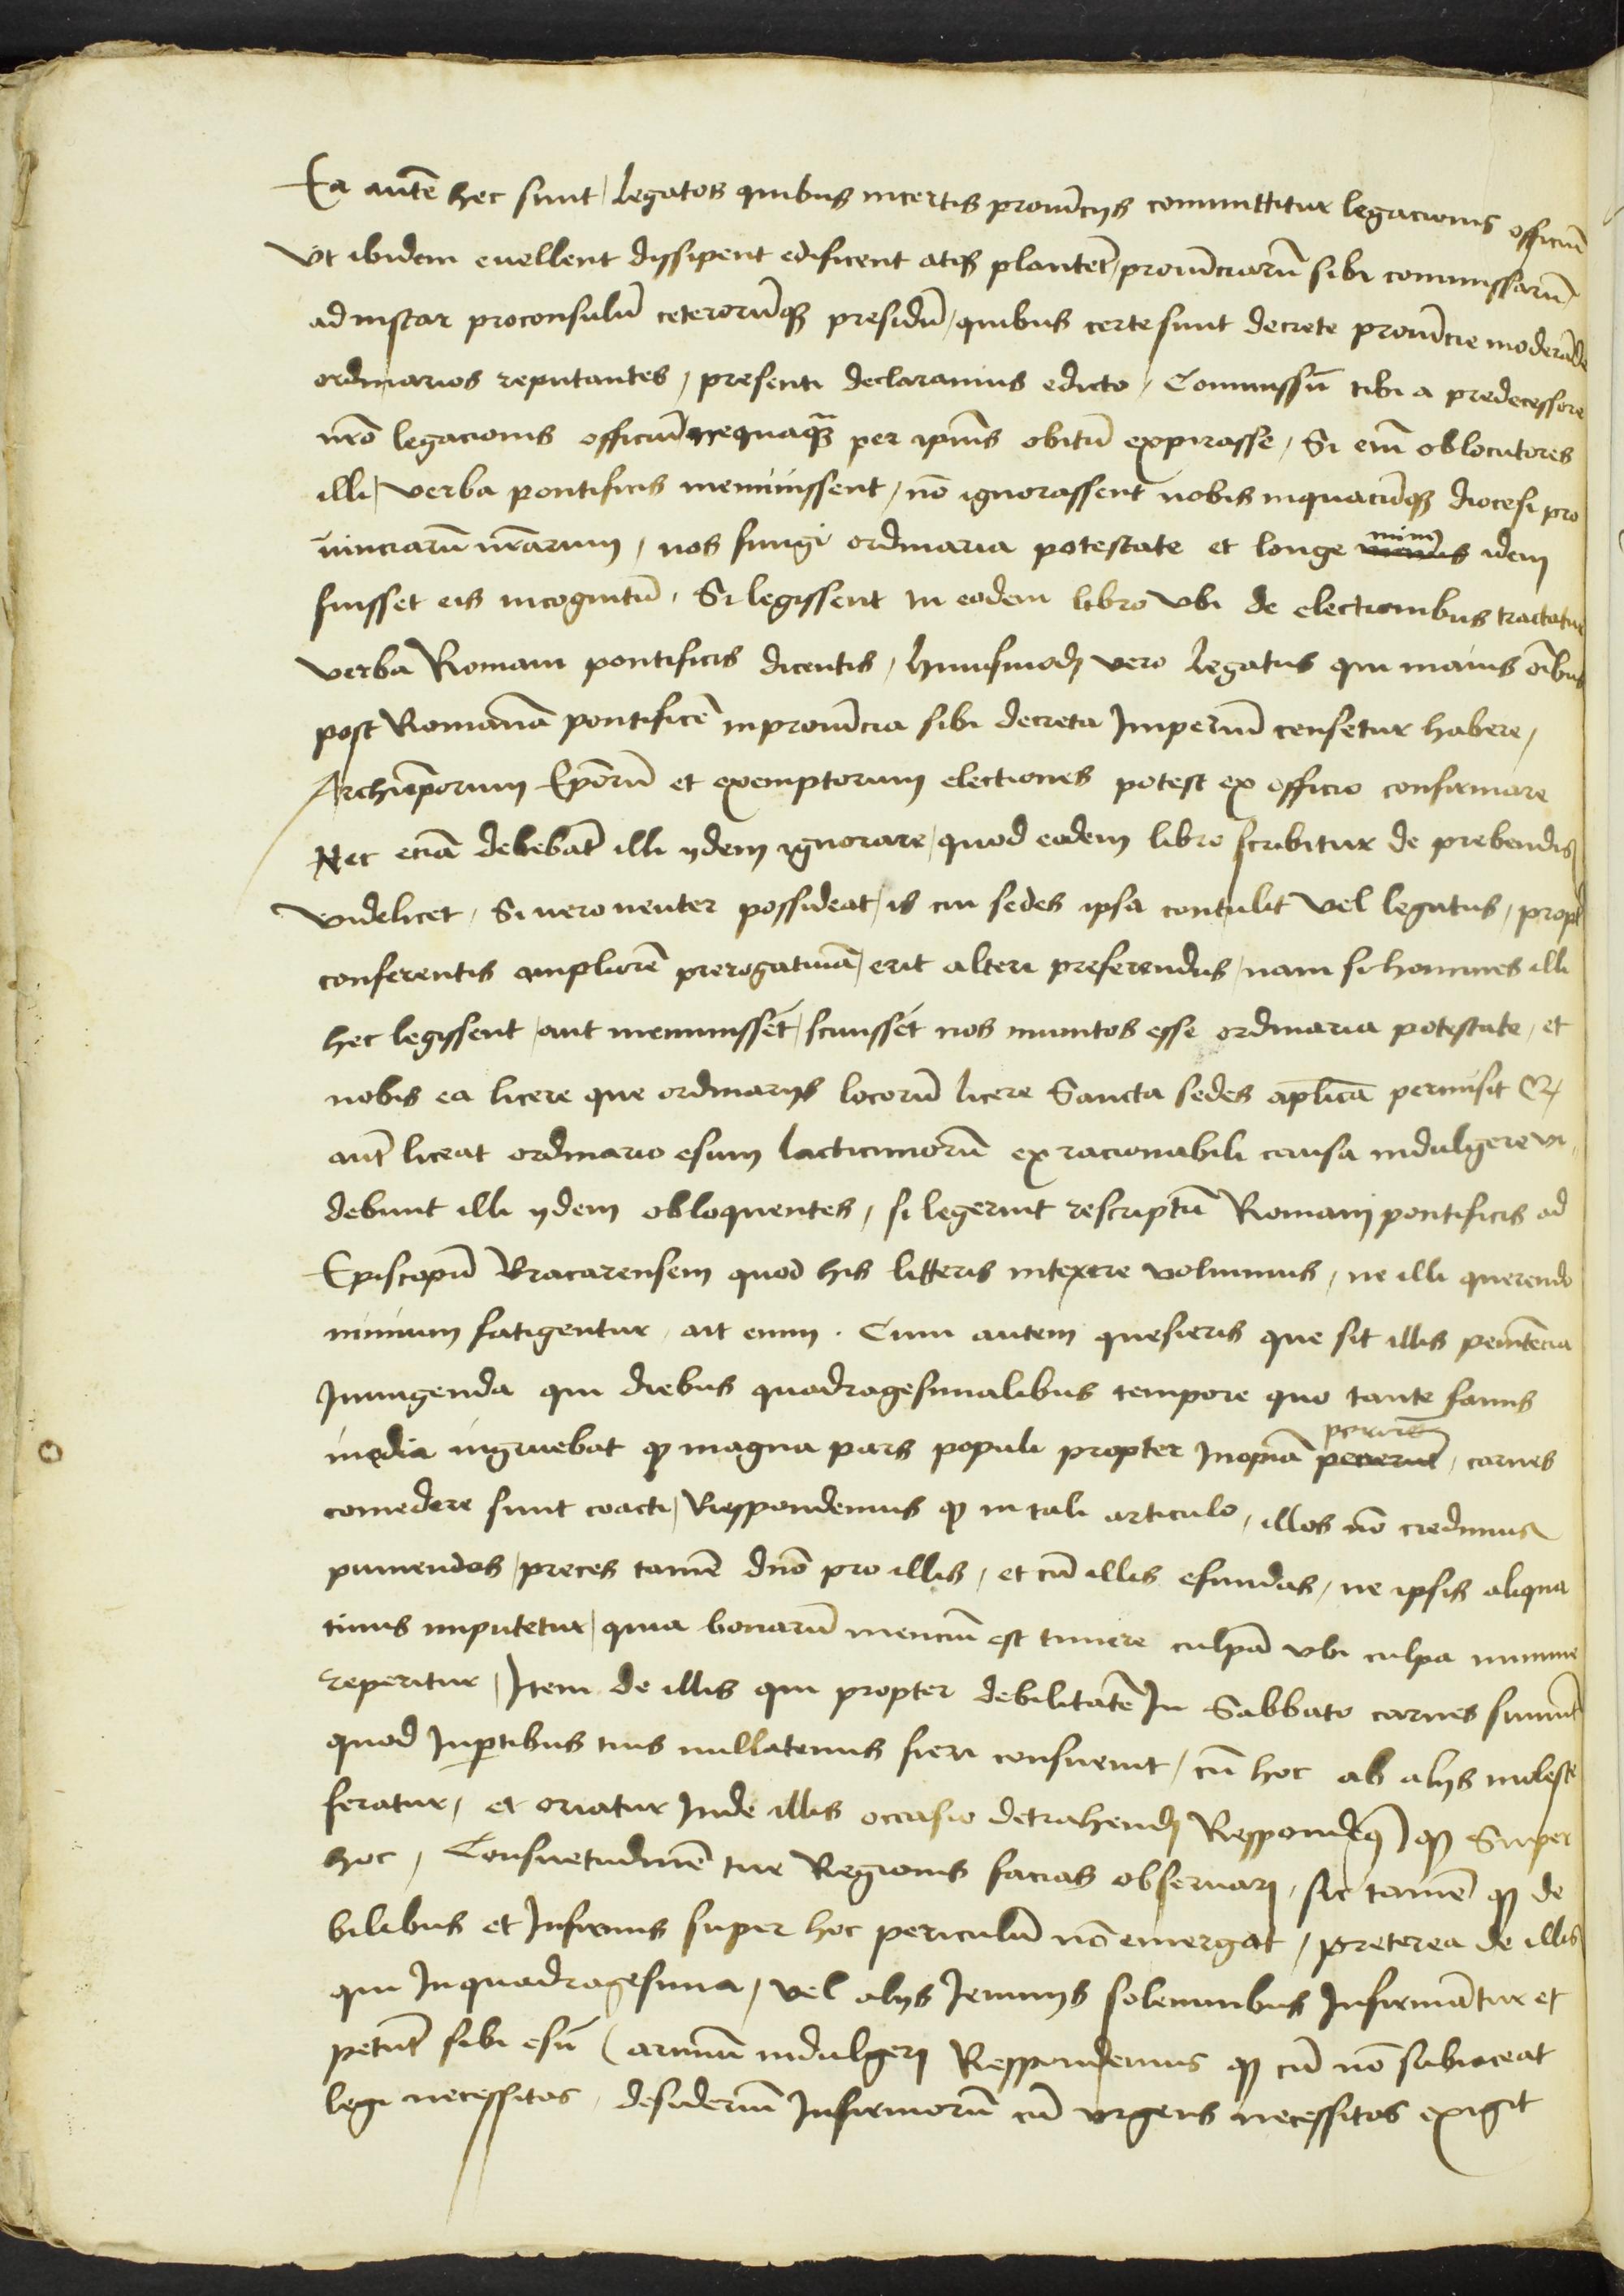 Ea autē hec sunt / Legatos quibus incertis prouīcijs committitur legacionis officiū
Vt ibidem euellent dissipent edificent atq; plantēt / prouīciarū sibi commissarū /
ad instar proconsulū ceterorūq; presidū / quibus certe sunt decrete prouīcie moderāde
ordinarios reputantes / presenti declaramus edicto / Commissū tibi a predecessore
nr̄o legacionis officiū nequaq̄ꝫ per ipīus obitū expirasse / Si eīn oblocutores
illi / verba pontificis meminissent / nō ignorassent nobis inquacūq; diocesi pro
uinciarū nr̄arum / nos fungi ordinaria potestate et longe minꝰ idem
fuisset eis incognitū / Si legissent in eodem libro vbi de electionibus tractatur
verba Romani pontificis dicentis / huiusmodj vero Legatus qui maius oībus
post Romanū pontificē inprouīcia sibi decreta Imperiū censetur habere /
Archiep̄orum Ep̄orū et exemptorum electiones potest ex officio confirmare
Nec eciā debebāt illi ydem ignorare / quod eodem libro scribitur de prebendis
videlicet / Si uero neuter possideat / is cui sedes ipsa contulit vel legatus / propt̄
conferentis ampliorē prerogatiuā / erit alteri preferendus / nam si homines illi
hec legissent / aut meminissēt / sciuissēt nos munitos esse ordinaria potestate / et
nobis ea licere que ordinarijs locorū licere Sancta sedes ap̄lica permisit
aut̄ liceat ordinario esum lacticiniorū ex racionabili causa indulgere vi
debunt illi ydem obloquentes / si legerint rescriptū Romanj pontificis ad
Episcopū Bracarensem quod his litteris intexere volumus / ne illi querendo
nimium fatigentur / ait enim . Cum autem quesieris que sit illis penitēcia
Iniungenda qui diebus quadragesimalibus tempore quo tante famis
inedia ingruebat q̄ magna pars populi propter Inopiā perirēt / carnes
comedere sunt coacti / Respondemus q̄ in tali articulo / illos nō credimus
puniendos / preces tamē dn̄o pro illis / et cū illis efundas / ne ipsis aliqua
tinus imputetur / quia bonarū menciū est timere culpā vbi culpa minime
reperitur / Item de illis qui propter debilitatē In Sabbato carnes sumūt
quod Inp̄tibus tuis nullatenus fieri consueuit / cū hoc ab alijs moleste
feratur / et oriatur Inde illis occasio detrahendj Respondeꝰ q̄ Super
hoc / Consuetudinē tue Regionis facias obseruarj / sic tamē q̄ de
bilibus et Infirmis super hoc periculū nō emergat / preterea de illis
qui Inquadragesima / vel alijs Ieiunijs solemnibus Infirmātur et
petūt sibi esū Carniū indulgerj Respondemus q̄ cū nō subiaceat
legi necessitas / desideriū Infirmorū cū vrgens necessitas exigit